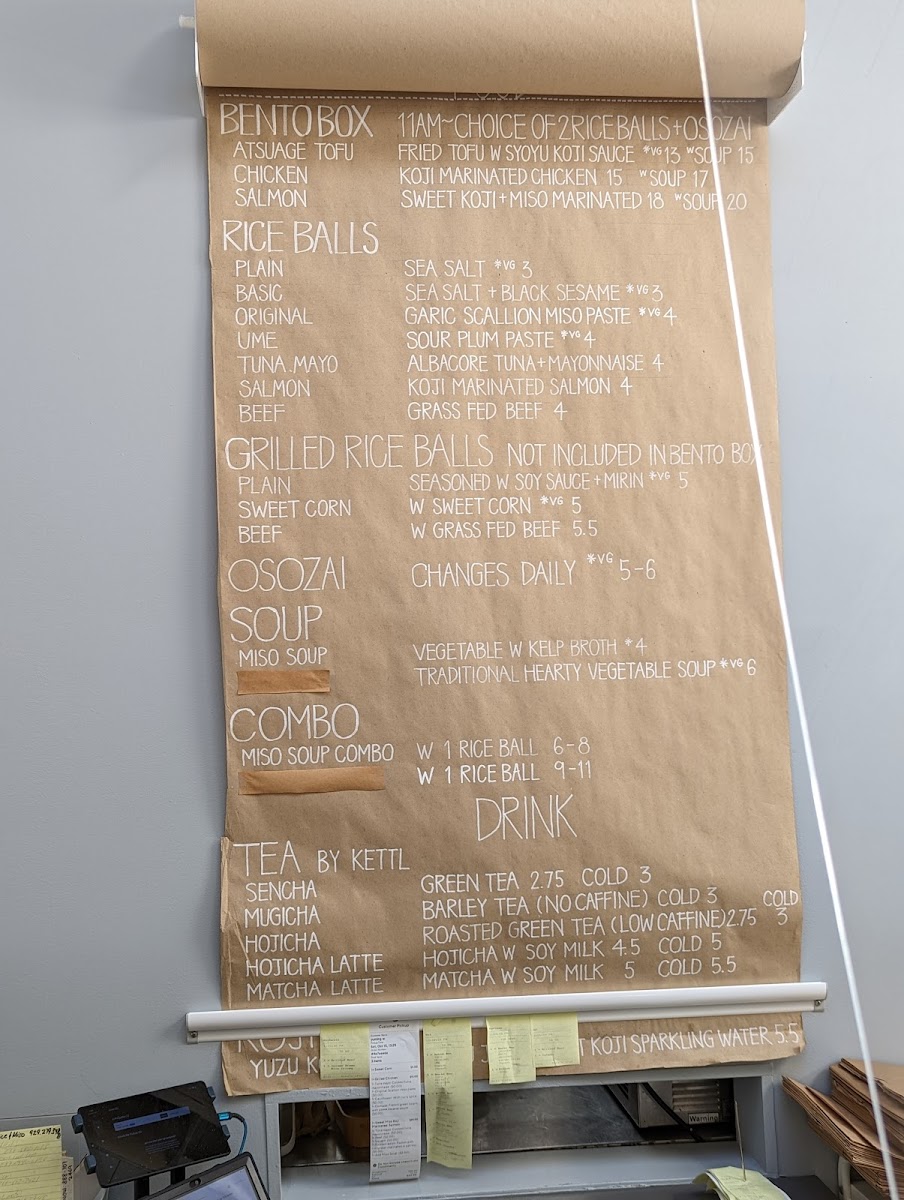 BENTO BOX 11AM~CHOICE OF 2 RICE BALLS + OSOZAI
ATSUAGE TOFU FRIED TOFU W SYOYU KOJI SAUCE *VG 13 W SOUP 15
CHICKEN KOJI MARINATED CHICKEN 15 W SOUP 17
SALMON SWEET KOJI + MISO MARINATED 18 W SOUP 20
RICE BALLS
PLAIN SEA SALT *VG 3
BASIC SEA SALT + BLACK SESAME *VG 3
ORIGINAL GARIC SCALLION MISO PASTE *VG 4
UME SOUR PLUM PASTE *VG 4
TUNA.MAYO ALBACORE TUNA + MAYONNAISE 4
SALMON KOJI MARINATED SALMON 4
BEEF GRASS FED BEEF 4
GRILLED RICE BALLS NOT INCLUDED IN BENTO BOX
PLAIN SEASONED W SOY SAUCE + MIRIN *VG 5
SWEET CORN W SWEET CORN *VG 5
BEEF W GRASS FED BEEF 5.5
OSOZAI CHANGES DAILY *VG 5-6
SOUP
MISO SOUP VEGETABLE W KELP BROTH *4
TRADITIONAL HEARTY VEGETABLE SOUP *VG 6
COMBO
MISO SOUP COMBO W 1 RICE BALL 6-8
W 1 RICE BALL 9-11
DRINK
TEA BY KETTL
SENCHA GREEN TEA 2.75 COLD 3
MUGICHA BARLEY TEA (NO CAFFINE) COLD 3
HOJICHA ROASTED GREEN TEA (LOW CAFFINE) 2.75 COLD 3
HOJICHA LATTE HOJICHA W SOY MILK 4.5 COLD 5
MATCHA LATTE MATCHA W SOY MILK 5 COLD 5.5
KOJI SPARKLING WATER 5.5
YUZU
Customer Pickup
Warning